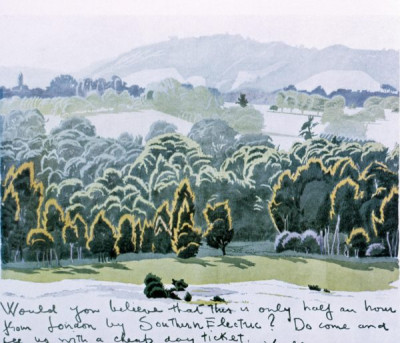 Would you believe that this is only half an hour
from London by Southern Electric? Do come and
see us with a cheap day ticket.